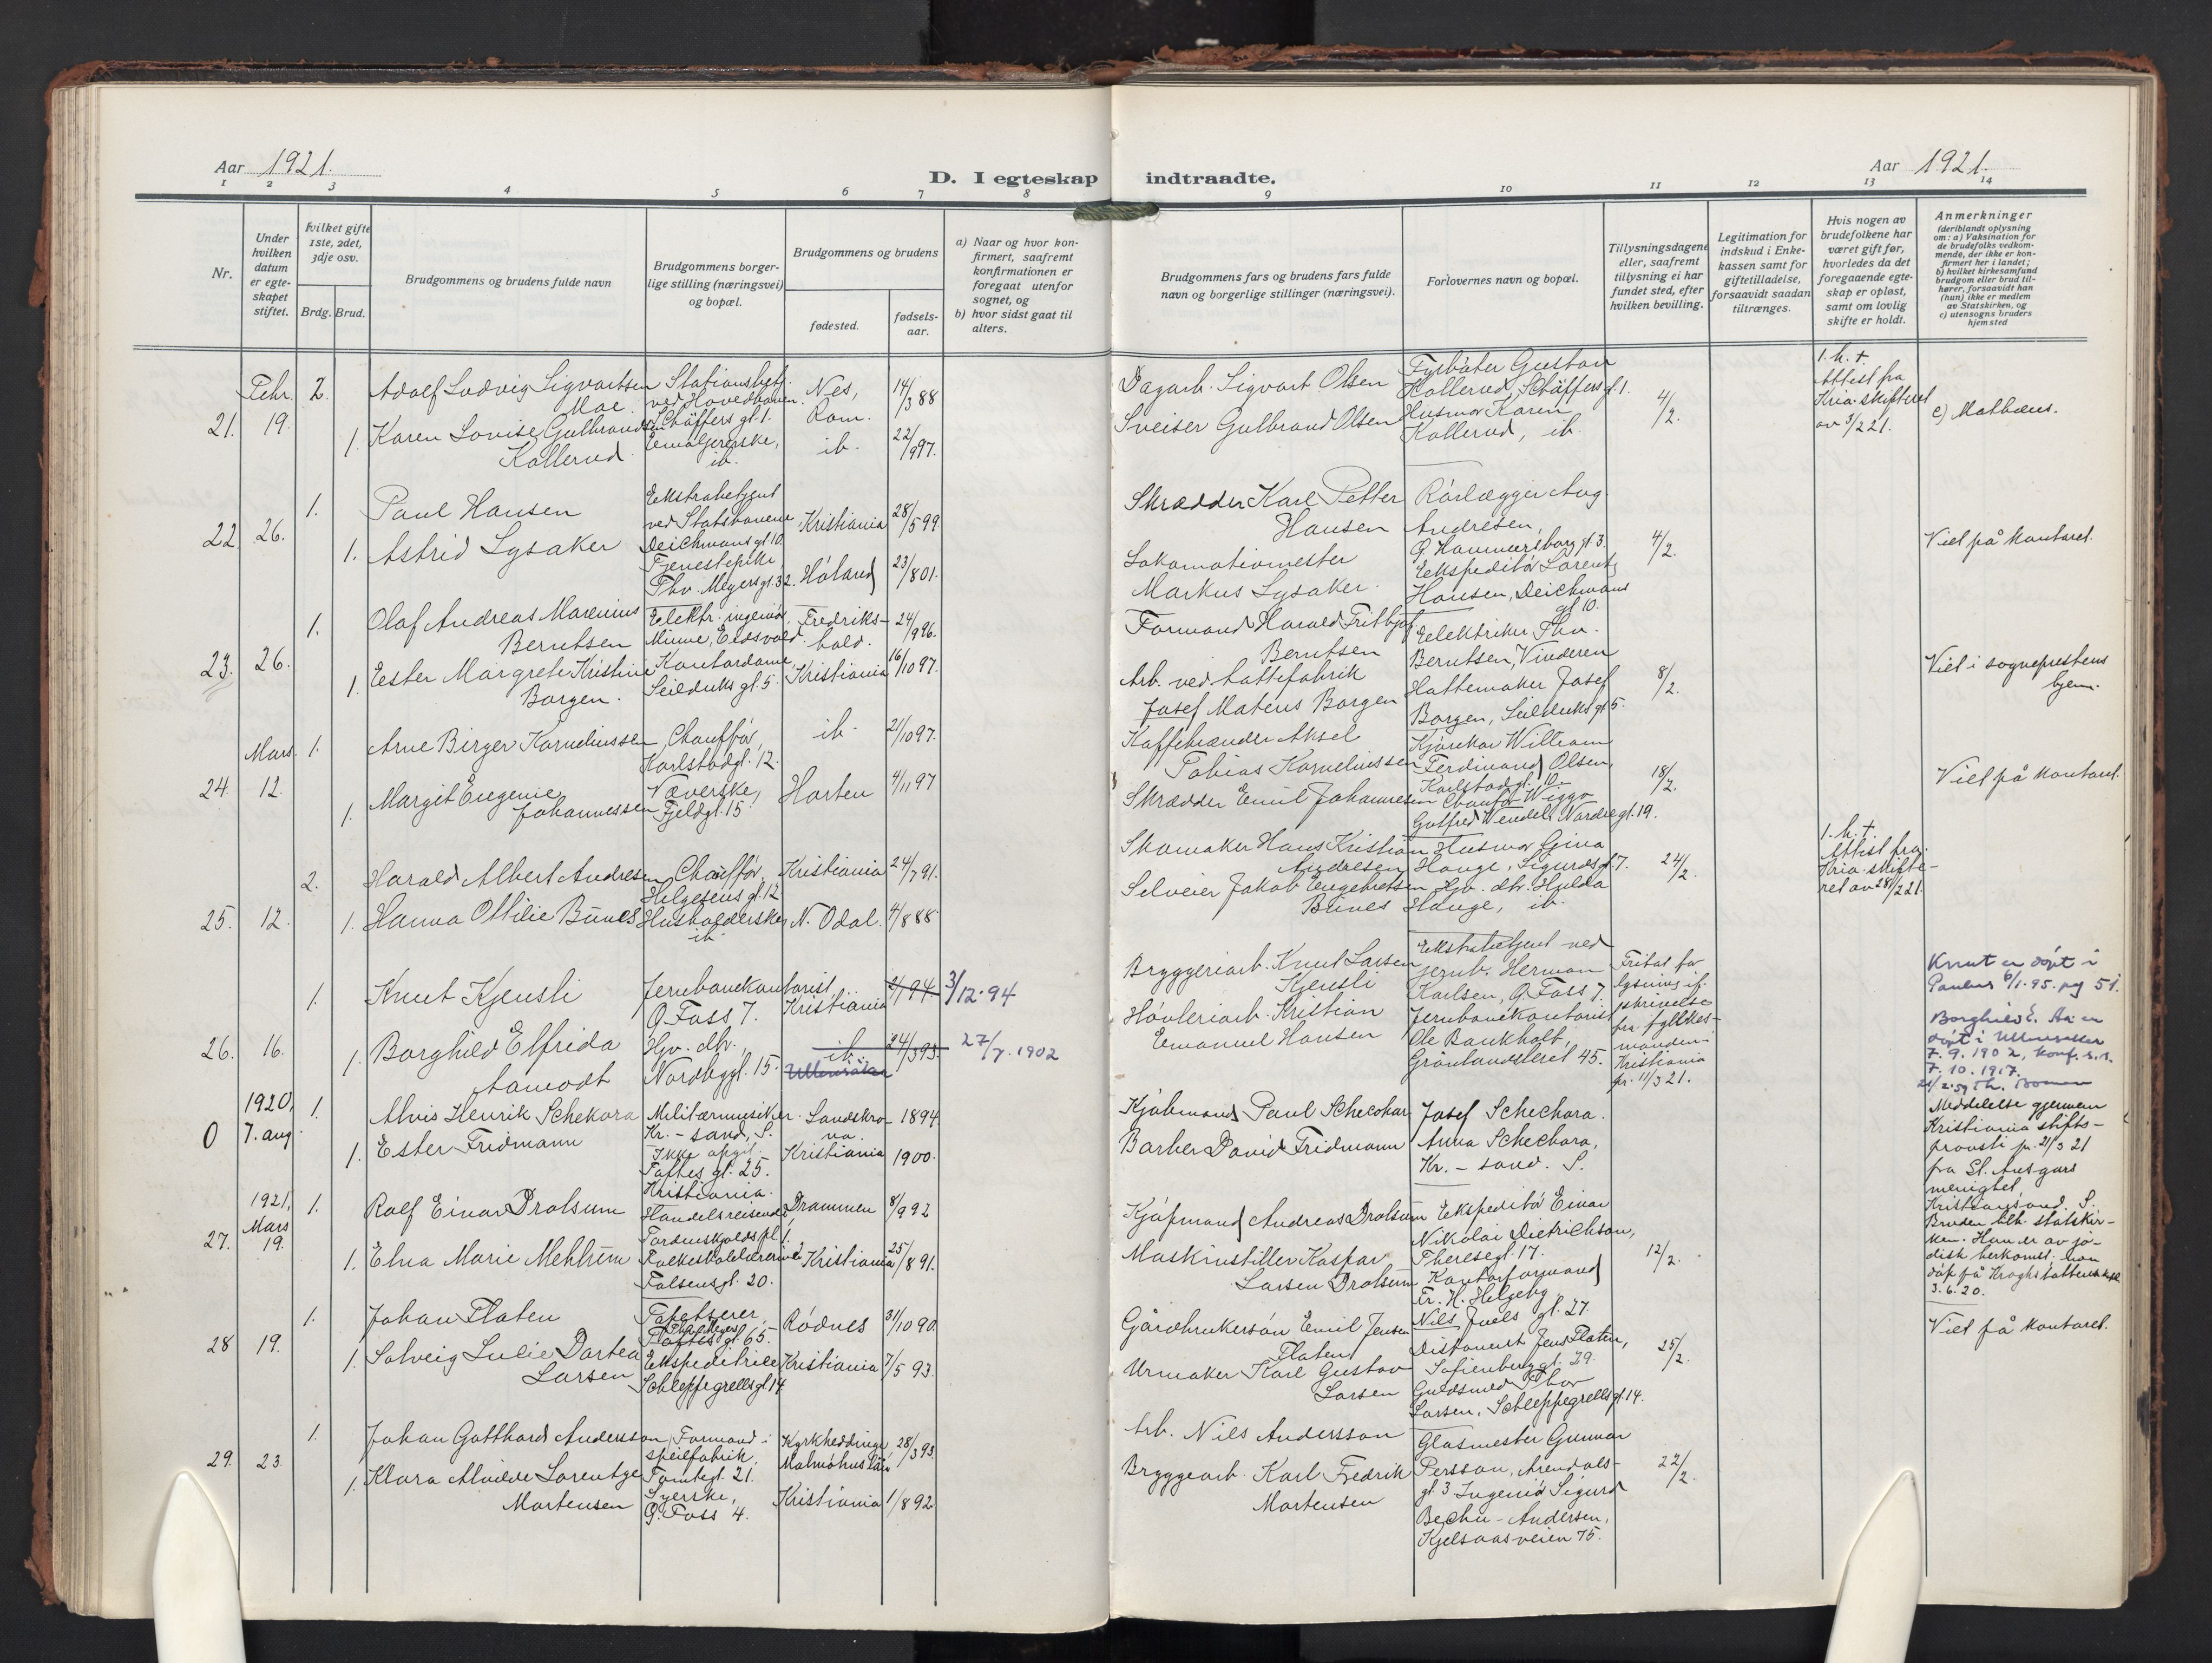 Aar 1921.
D. I egteskap indtraadte.
Aar 1921.
1 2 3 4 5 6 7 8 9 10 11 12 13 14
Nr.
Under hvilken datum er egteskapet stiftet.
Hvilket gifte 1ste, 2det, 3dje osv.
Brdg. Brud.
Brudgommens og brudens fulde navn
Brudgommens borgerlige stilling (næringsvei) og bopæl.
Brudgommens og brudens
fødested.
fødselsaar.
a) Naar og hvor konfirmert, saafremt konfirmationen er foregaat utenfor sognet, og
b) hvor sidst gaat til alters.
Brudgommens fars og brudens fars fulde navn og borgerlige stillinger (næringsvei).
Forlovernes navn og bopæl.
Tillysningsdagene eller, saafremt tillysning ei har fundet sted, efter hvilken bevilling.
Legitimation for indskud i Enkekassen samt for giftetilladelse, forsaavidt saadan tiltrænges.
Hvis nogen av brudefolkene har været gift før, hvorledes da det foregaaende egteskap er opløst, samt om lovlig skifte er holdt.
Anmerkninger
(deriblandt oplysning om: a) Vaksination for de brudefolks vedkommende, der ikke er konfirmert her i landet;
b) hvilket kirkesamfund brudgom eller brud tilhører, forsaavidt han (hun) ikke er medlem av Statskirken, og
c) utensogns bruders hjemsted
21. Febr. 19. 2. Adolf Ludvig Sigvartsen Moe. Stationsbetj. ved Hovedbanen. Schäffers gt. 1. Nes, Rom. 14/3 88
1. Karen Lovise Gulbrandsen Kollerud. Emaljererske, ib. ib. 22/9 97.
Dagarb. Sigvart Olsen
Sveiser Gulbrand Olsen
Fyrbøter Gustav Kollerud, Schäffers gt. 1.
Husmor Karen Kollerud, ib.
4/2.
1. h. †. Attest fra Kria. skifteret av 3/2 21.
c) Mathæus.
22. 26. 1. Paul Hansen Ekstrabetjent ved Statsbanene, Deichmans gt. 10. Kristiania 28/5 99
1. Astrid Lysaker Tjenestepike Thv. Meyers gt. 32. Høland 23/8 01.
Skrædder Karl Petter Hansen
Lokomotivmester Markus Lysaker.
Rørlægger Aug. Andresen, Q. Hammersborg gt. 3.
Ekspeditør Lorentz Hansen, Deichmans gt. 10.
4/2.
Viet på kontoret.
23. 26. 1. Olaf Andreas Marenius Berntsen Elektr. ingeniør, Minne, Eidsvold. Fredrikshald. 24/9 96.
1. Ester Margrete Kristine Borgen. Kontordame, Seilduks gt. 5. Kristiania 16/10 97.
Formand Harald Frithjof Berntsen
Arb. ved hattefabrik Josef Mateus Borgen
Elektriker Thv. Berntsen, Vinderen
Hattemaker Josef Borgen, Seilduks gt 5.
8/2.
Viet i sogneprestens hjem.
24. Mars 12. 1. Arne Birger Korneliussen Chauffør, Karlstadgt. 12. ib. 21/10 97.
1. Margit Eugenie Johannessen Væverske, Fjeldgt. 15. Horten 4/11 97
Kaffebrænder Aksel Tobias Korneliussen
Skrædder Emil Johannesen
Kjørekar William Ferdinand Olsen, Karlstadgt. 10.
Chauffør Wiggo Gotfred Wendel, Nordregt. 19.
18/2.
Viet på kontoret.
25. 12. 2. Harald Albert Andresen Chauffør, Helgesens gt. 12 Kristiania 24/7 91.
1. Hanna Ottilie Bunes Husholderske, ib. N. Odal. 4/8 88
Skomaker Hans Kristian Andresen
Selveier Jakob Engebretsen Bunes
Husmor Gina Hauge, Sigurdsgt 7.
Hjv. dtr. Hulda Hauge, ib.
24/2.
1. h. †. Attest fra Kria. skifteret av 28/2 21.
26. 16. 1. Knut Kjensli Jernbanekontorist Ø. Foss 7. Kristiania 2/1 94 3/12. 94
1. Borghild Elfrida Aamodt Hjv. dtr., Nordbygt. 15. ib. Ullensaker 24/3 93. 27/7. 1902
Bryggeriarb. Knut Larsen Kjensli
Høvleriarb. Kristian Emanuel Hansen
Ekstrabetjent ved jernb. Herman Karlsen, Ø. Foss 7.
Jernbanekontorist Ole Bankholt, Grønlandsleiret 45.
Fritat for lysning if. skrivelse fra fylkesmanden i Kristiania pr. 11/3 21.
Knut er døpt i Paulus 6/1. 95. pg 51.
Borghild E. Aa. er døpt i Ullensaker 7. 9. 1902, konf. s. s. 7. 10. 1917.
0 1920, 7. aug. 1. Alvis Henrik Schekora Militærmusiker. Kr.-sand, S. Landskrona. 1894.
1. Ester Fridmann Ikke opgit. Toftes gt. 25. Kristiania. Kristiania 1900.
Kjøbmand Paul Schecohar
Barber David Fridmann
Josef Schechora.
Anna Schechora, Kr.-sand. S.
Meddelelse gjennem Kristiania stiftsprovsti pr. 21/3 21 fra St. Ansgars menighet, Kristiansand. S. Bruden tilh. statskirken. Hun er av jødisk herkomst.
3. 6. 20.
27. 1921, Mars 19. 1. Rolf Einar Drolsum Handelsreisende, Tordenskjolds pl. 1. Drammen 8/9 92
1. Elna Marie Mehlum Folkeskolelærerinde Falsens gt. 20. Kristiania 25/8 91.
Kjøpmand Andreas Drolsum
Maskinstiller Kaspar Larsen Drolsum
Ekspeditør Einar Nikolai Dietrichson, Theresegt. 17.
Kontorformand Fr. H. Helgeby Nils Juels gt. 27.
12/2.
28 19. 1. Johan Flaten Tapetserer, Thv. Meyers gt. 65. Rødnes 31/10 90.
1. Solveig Julie Dortea Larsen Ekspeditrice Schleppegrellsgt. 14. Kristiania 7/5 93.
Gårdbrukersøn Emil Jensen Flaten
Urmaker Karl Gustav Larsen
Diskonert Jens Flaten, Sofienberggt. 29.
Guldsmed Thor Larsen, Schleppegrellsgt. 14.
25/2.
Viet på kontoret.
29. 23. 1. Johan Gotthard Andersson Formand i speilfabrik, Tomtegt. 21. Kyrkheddinge, Malmøhus län 28/3 93.
1. Klara Alvilde Lorentze Mortensen Syerske, Ø. Foss 4. Kristiania 1/8 92
Arb. Nils Andersson
Bryggearb. Karl Fredrik Mortensen
Glasmester Gunnar Persson, Arendalsgt. 3
Ingeniør Sigurd Bechu-Andersen, Kjelsaasveien 75.
22/2.